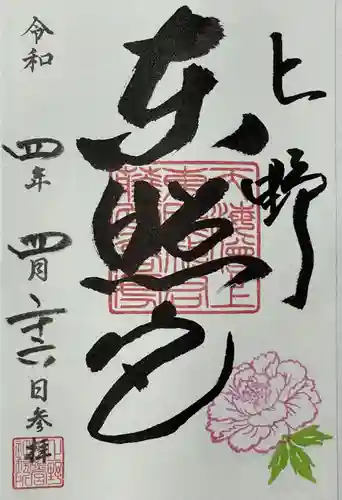 上野
東照宮
令和四年四月廿六日参拝